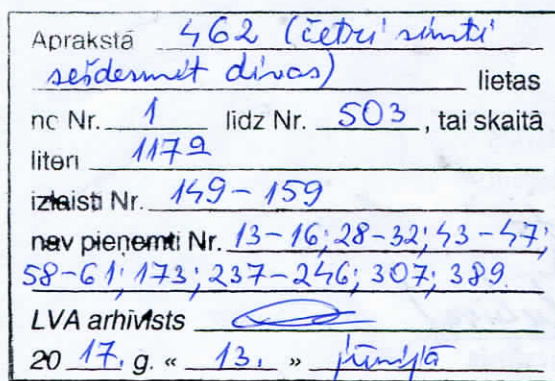 Aprakstā 462 (četri simti
sešdesmit divas) lietas
no Nr. 1 līdz Nr. 503, tai skaitā
literi 117a
izlaisti Nr. 149-159
nav pieņemti Nr. 13-16; 28-32; 43-47;
58-61; 173; 237-246; 307; 389.
LVA arhīvists
20 17. g. « 13. » jūnijā